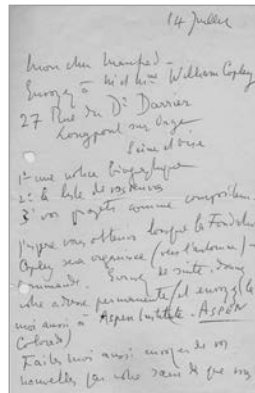 14 Juillet
Mon cher Manfred –
Envoyez à Mr et Mme William Copley
27 Rue du Dr Darrier
Longpont sur Orge
Seine et Oise
1º une notice biographique
2º la liste de
3º vos projets comme compositeur.
J'espère vous obtenir lorsque la Fondation
Copley sera organisée (vers l'automne) une
commande. Écrivez de suite, donnez
votre adresse permanente (et envoyez-le
moi aussi à Aspen Institute. ASPEN
Colorado)
Faites moi aussi envoyer de vos
nouvelles par votre de que vous